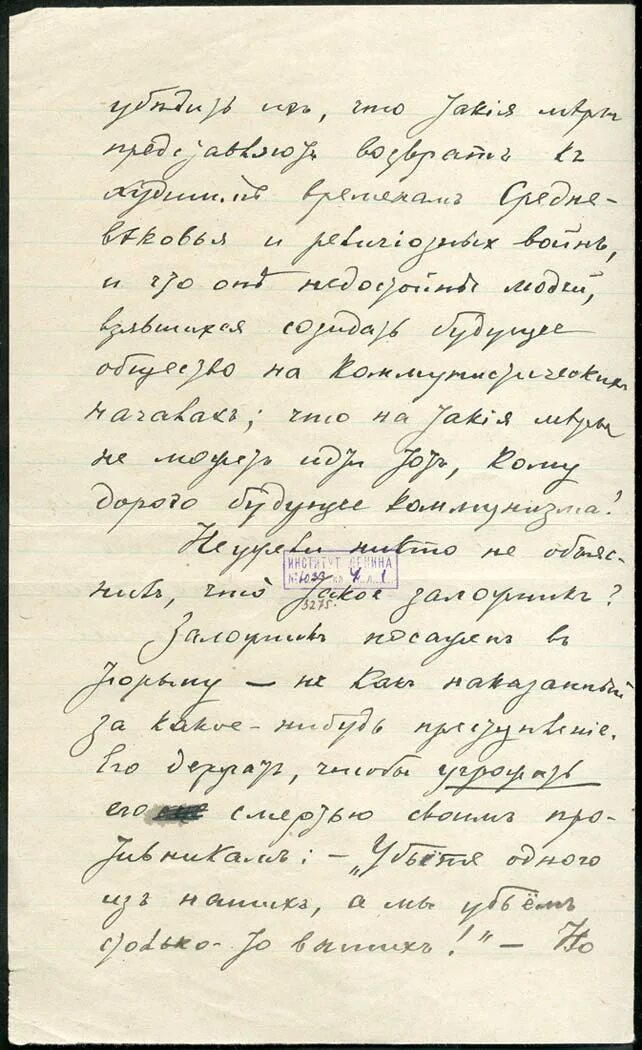 убѣдить ихъ, что такія мѣры
представляютъ возвратъ къ
худшимъ временамъ Средне-
вѣковья и религіозныхъ войнъ,
и что онѣ недостойны людей,
взявшихся созидать будущее
общество на коммунистическихъ
началахъ; что на такія мѣры
не можетъ идти тотъ, кому
дорого будущее коммунизма!
Неужели никто не объяс-
ИНСТИТУТ ЛЕНИНА
№ л. 1
нилъ, что такое заложникъ?
3275.
Заложникъ посаженъ въ
тюрьму — не какъ наказанный
за какое-нибудь преступленіе.
Его держатъ, чтобы угрожать
его смертью своимъ про-
тивникамъ: — „Убьете одного
изъ нашихъ, а мы убьёмъ
столько-то вашихъ!" — Но